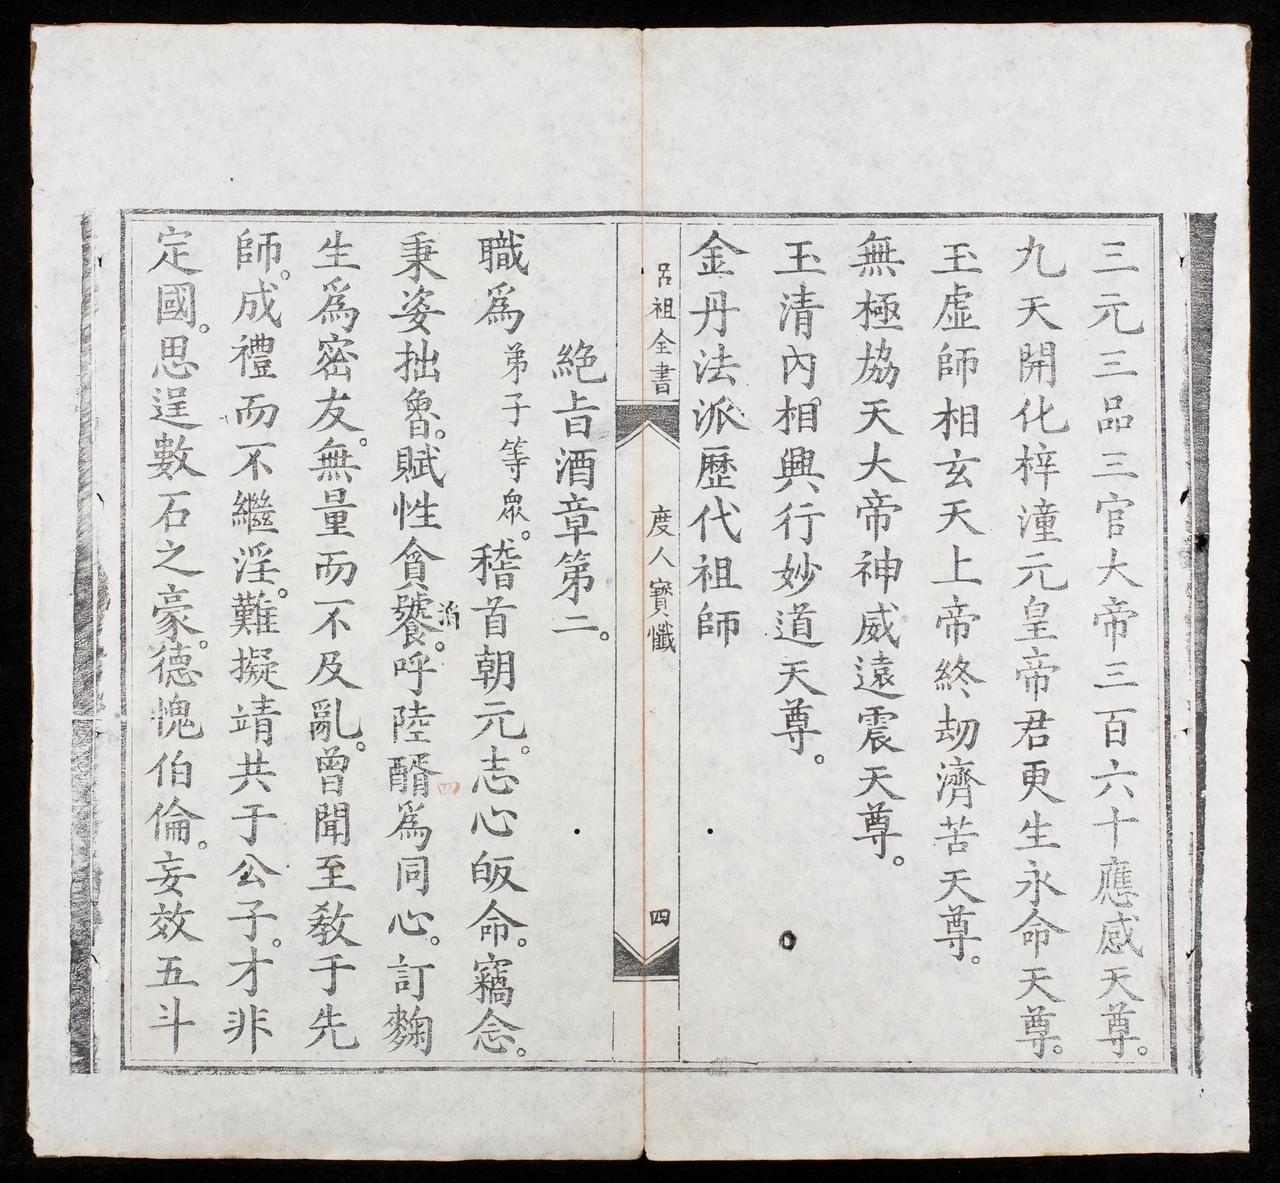 三元三品三官大帝三百六十應感天尊。
九天開化梓潼元皇帝君更生永命天尊。
玉虛師相玄天上帝終劫濟苦天尊。
無極協天大帝神威遠震天尊。
玉清內相興行妙道天尊。
金丹法派歷代祖師
呂祖全書 度人寶懺 四
絕旨酒章第二。
職爲弟子等眾。稽首朝元。志心皈命。竊念。
秉姿拙魯。賦性貪饕。呼陸醑爲同心。訂麴
生爲密友。無量而不及亂。曾聞至教于先
師。成禮而不繼淫。難擬靖共于公子。才非
定國。思逞數石之豪。德愧伯倫。妄效五斗
四